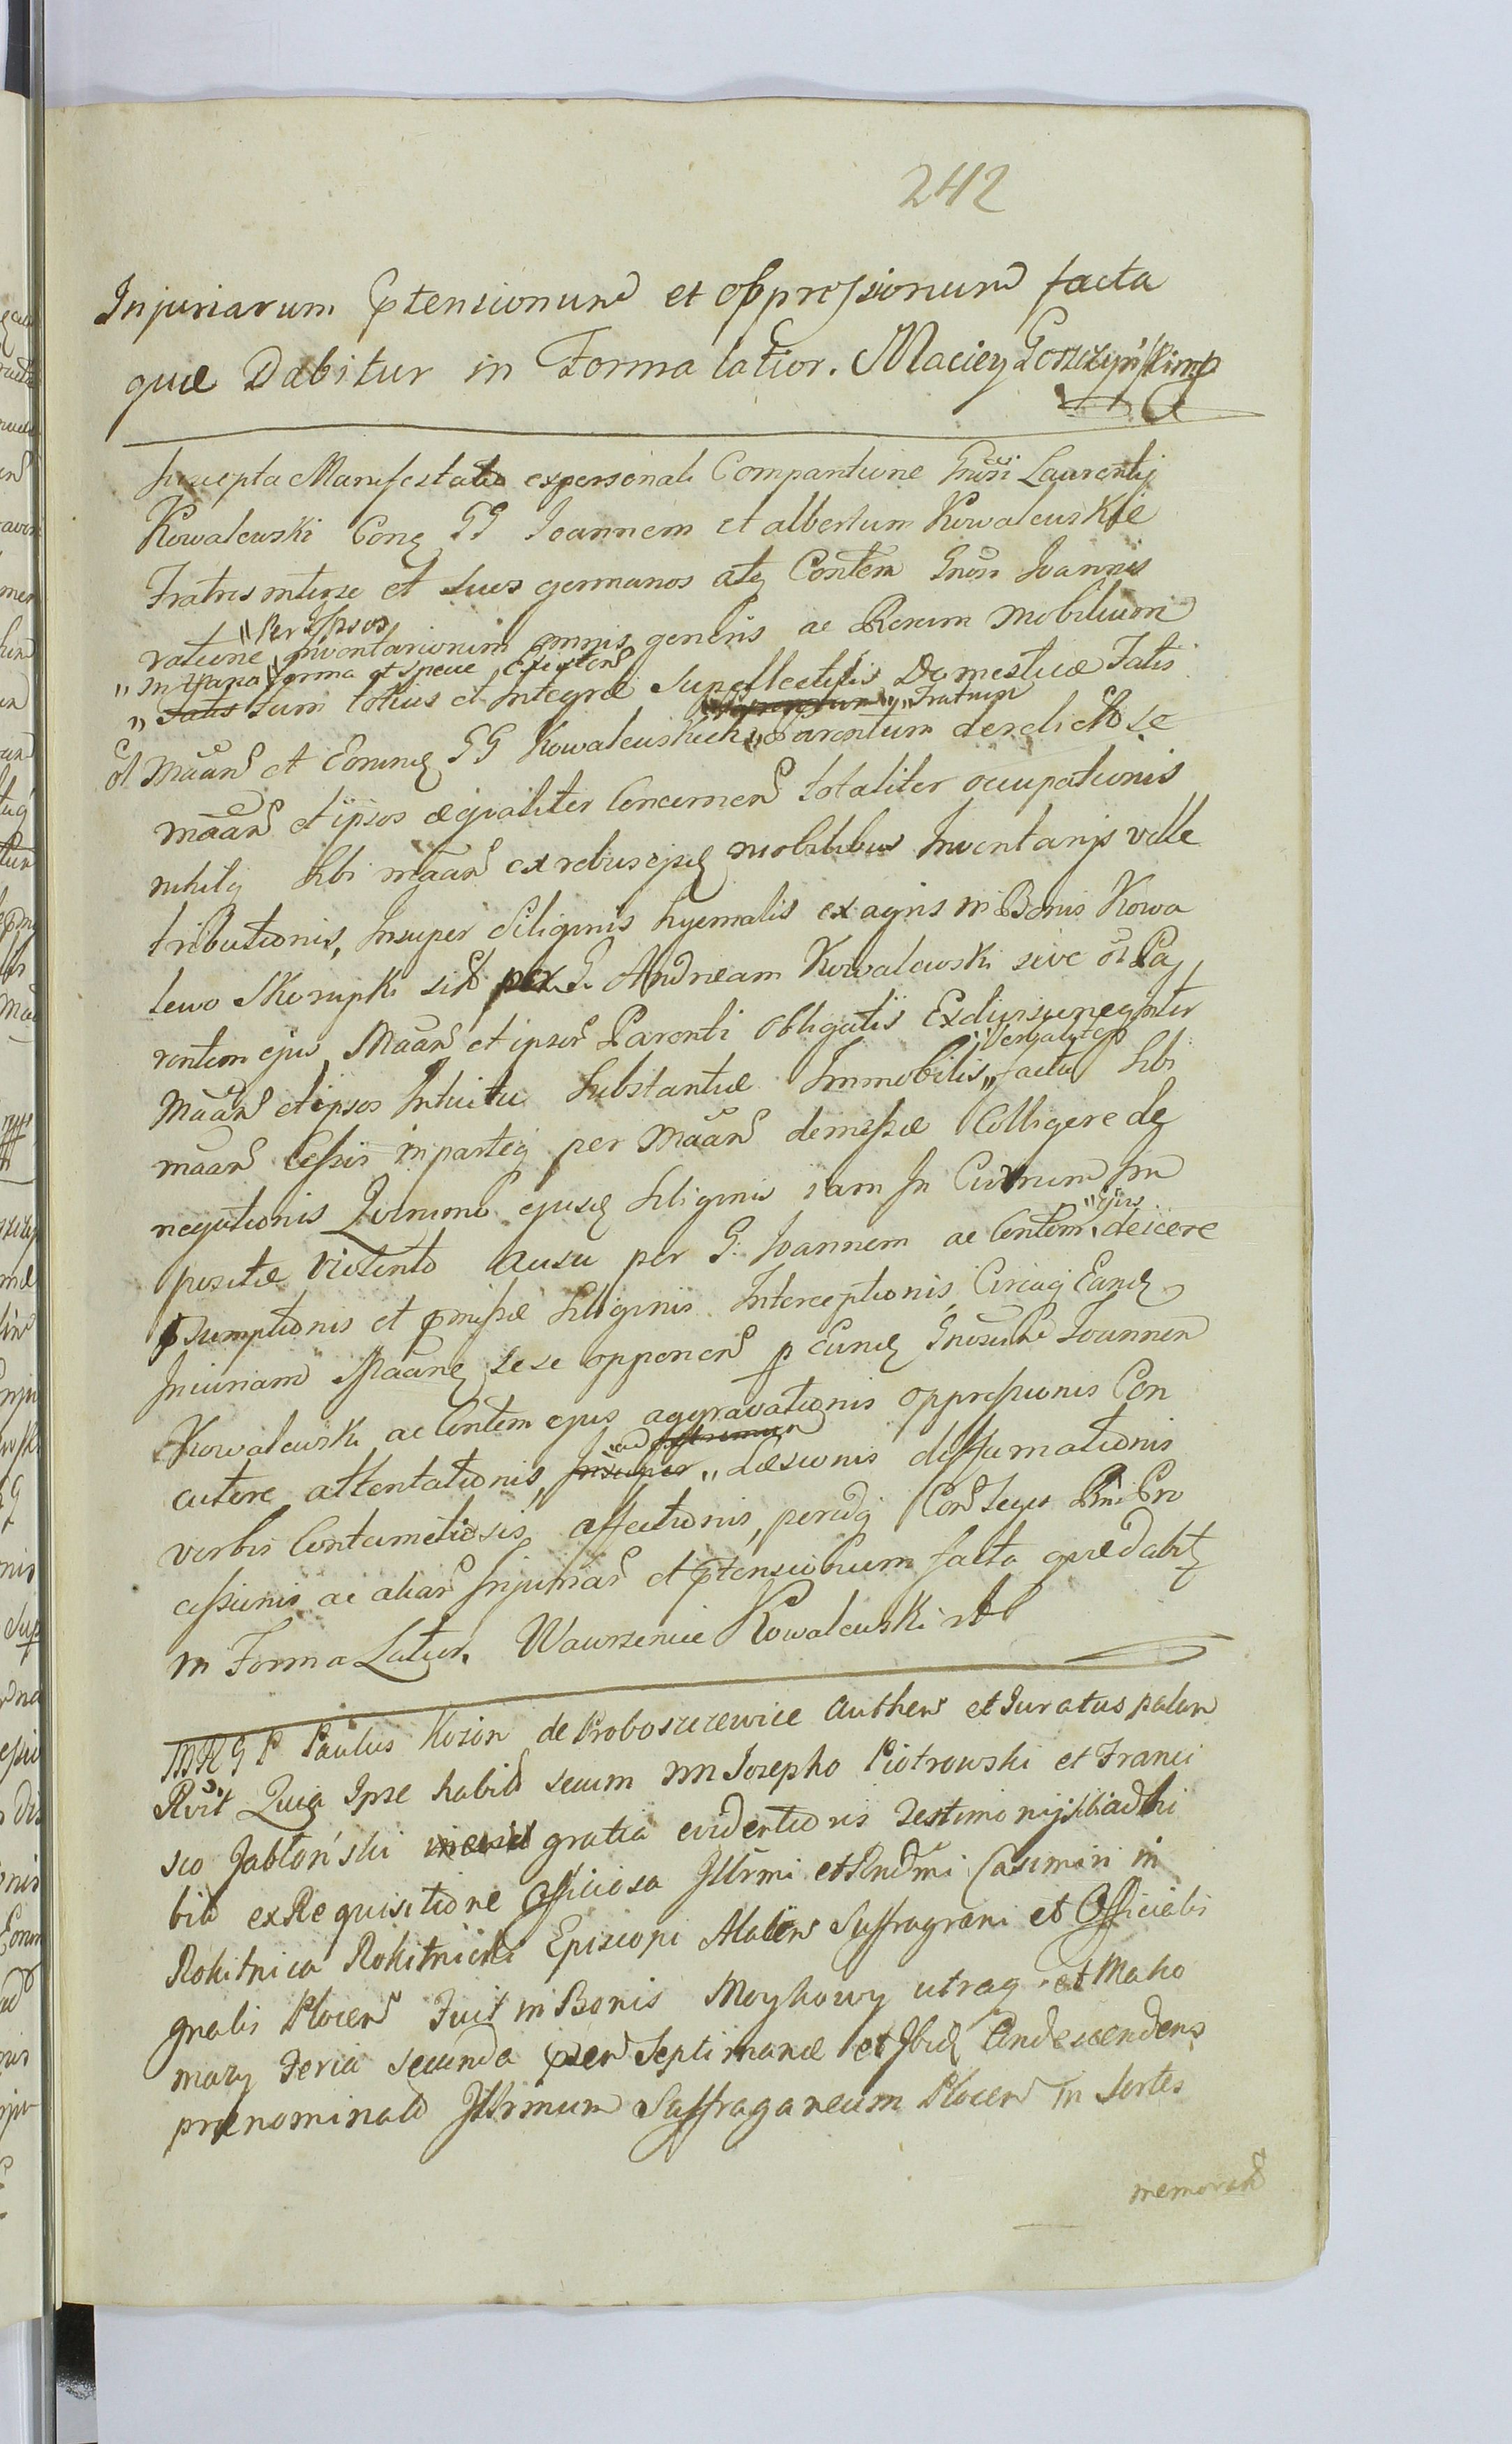 242
Injuriarum Ptensionum et oppressionum facta
quæ Dabitur in Forma latior. Maciey Goszczyński mp
Suscepta Manifestatio expersonali Comparitione Gnosi Laurentij
Kowalewski Conq GG Joannem et albertum Kowalewskie
Fratres interse et suos germanos atq Contem Gnosi Joannis
"Per Ipsos
ratione inventariorum omnis generis ac Rerum mobilium
"In Una forma et specie Existen
"Satis tum totius et Integræ Supellectilis Domesticæ Fatis
"Fratrum
ol Maan et Eorund GG Kowalewskich Parentum derelicto se
maan et ipsos æqualiter Concernen totaliter occupationis
nihilq sibi maan ex rebus ejsd mobilibus Inventarijs velle
tributionis, Insuper Siliginis hyemalis ex agris in Bonis Kowa
lewo Skorupki sito per G. Andream Kowalewski sive ol Pa
rentem ejus, Maan et ipsor Parenti obligatis Exdivisione inter
"Verbaliter
Maan et ipsos Intuitu Substantiæ Immobilis "facta sibi
maan Cessis in parteq per Maan demessæ Colligere de
negationis Quinimo ejusd siliginis jam In Cumulum Im
"ejus
positæ violento ausu per G. Joannem ac Contem deicere
Psumptionis et Pmissæ Siliginis Interceptionis Circaq Eand
Injuriam Maanq sese opponen p Eund Gnosum Joannem
Kowalewski ac Contem ejus aggravationis oppressionis Con
"ad
cutere attentationis, Insuper "Læsionis diffamationis
verbis Contumeliosis affectionis, peridq Con Leges Rni Pro
cessionis ac aliar Injuriar et Ptensionum facta quæ dabit
in Forma Latior. Wawrzeniec Kowalewski
MRGP Paulus Kozon de Proboszczewice Authen et Juratus palam
Rvit Quia Ipse habito secum NN Josepho Piotrowski et Franci
sco Jabłoński gratia evidentioris Testimonij sibi adhi
bito ex Requisitione Officiosa Illrmi et Rndmi Casimiri in
Rokitnica Rokitnicki Episcopi Alalien Suffragani et Officialis
gnalis Plocen Fuit in Bonis Moykowy utraq et Mako
mazy Feria secunda Psen Septimanæ et Ibid Condescendens
prænominato Illrimum Suffraganeum Plocen in Sortes
memorat